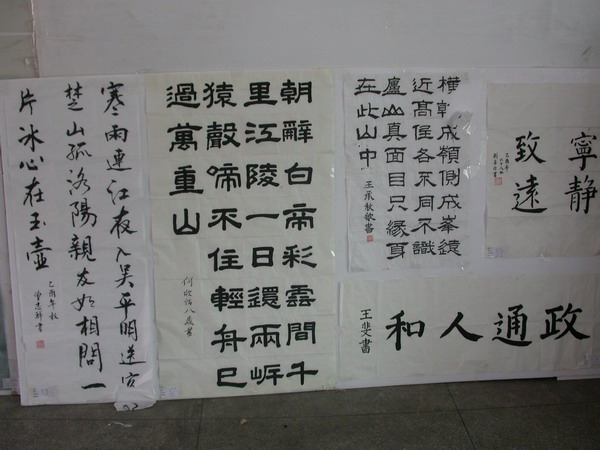 寒雨連江夜入吴平明送客
楚山孤洛陽親友如相問一
片冰心在玉壺
乙酉年秋
朝辭白帝彩雲間千
里江陵一日還兩岸
猿聲啼不住輕舟已
過萬重山
橫看成嶺側成峯遠
近髙低各不同不識
廬山真面目只緣身
在此山中
寧静
致遠
政通人和
王斐書